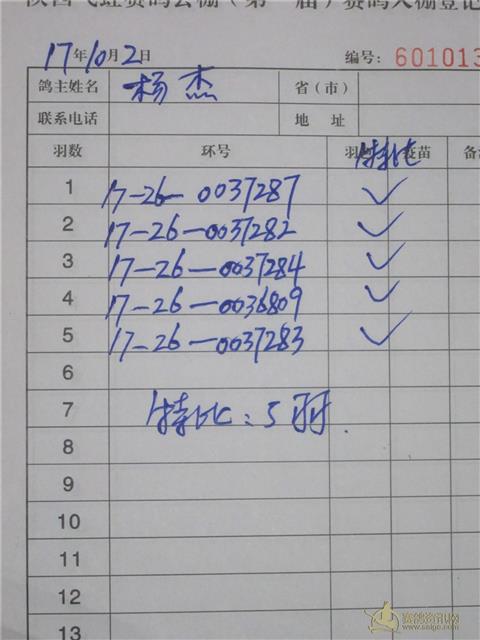 陕西飞翔赛鸽公棚（第一届）赛鸽入棚登记
17年10月2日 编号: 601013
鸽主姓名 杨杰 省（市）
联系电话 地 址
羽数 环号 羽色 特比 疫苗 备
1 17-26-0037287 ✓
2 17-26-0037282 ✓
3 17-26-0037284 ✓
4 17-26-0036809 ✓
5 17-26-0037283 ✓
6
7 特比：5羽.
8
9
10
11
12
13
赛鸽资讯网
www.saige.com